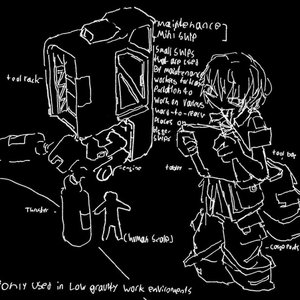 [maintenance]
Mini Ship
Small ships
that are used
by maintenance
workers for
work on various
hard-to-reach
places on
ships
tool rack
engine
Thruster
[human scale]
tool bag
cargo pants
only used in Low gravity work environments